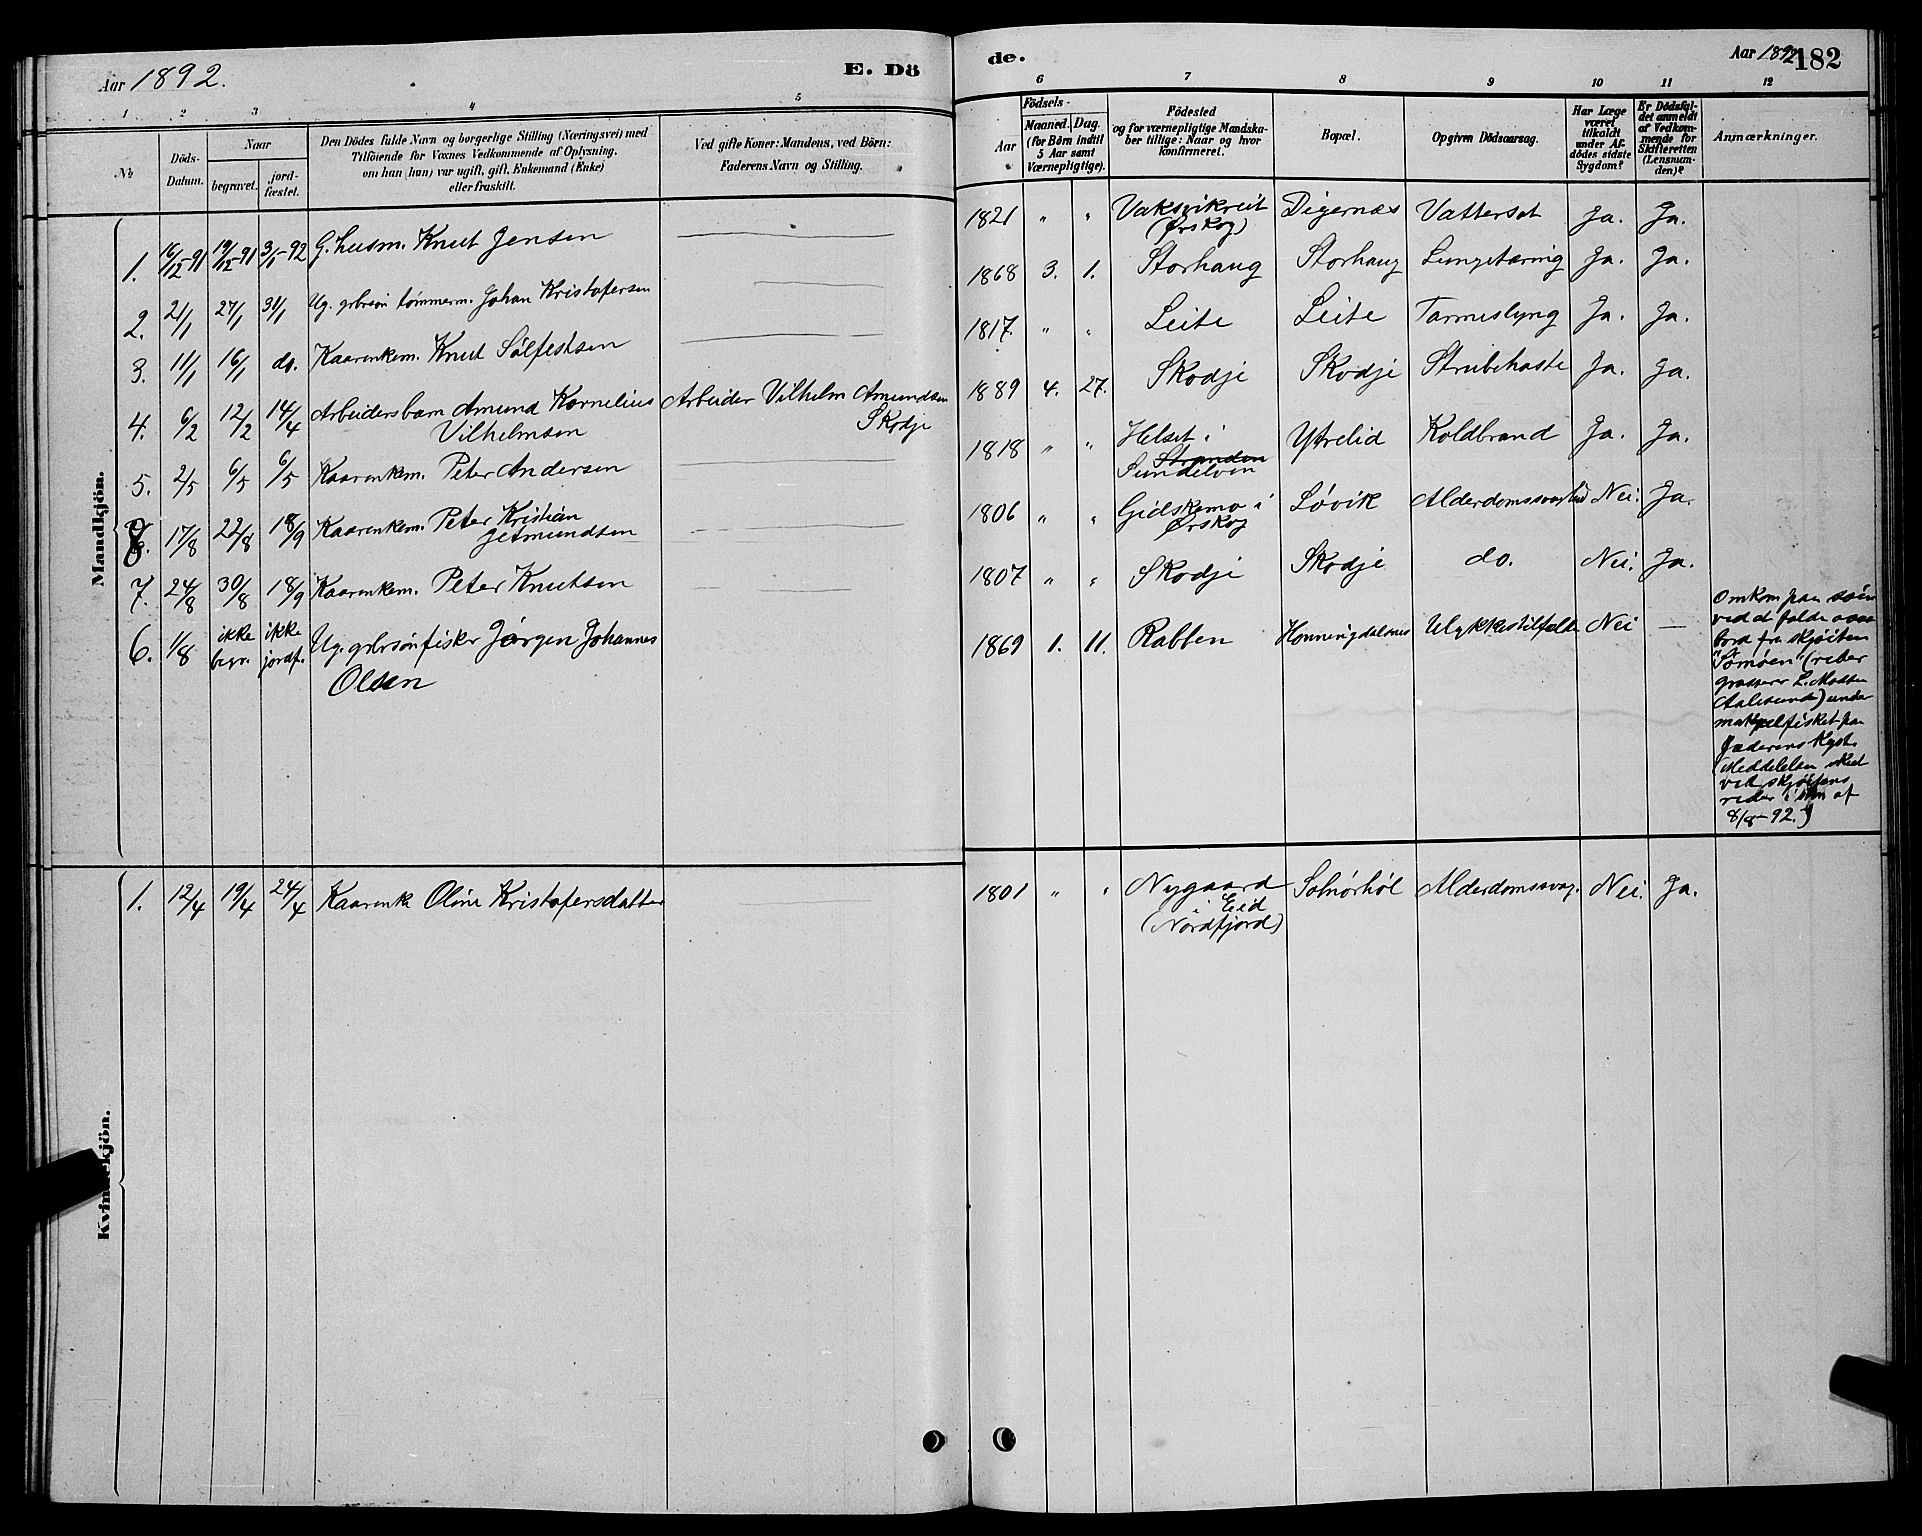 Aar 1892.
E. Dö
1 2 3 4 5
№
Döds-
Datum.
Naar
begravet.
jord-
fæstet.
Den Dödes fulde Navn og borgerlige Stilling (Næringsvei) med
Tilföiende for Voxnes Vedkommende af Oplysning,
om han (hun) var ugift, gift, Enkemand (Enke)
eller fraskilt.
Ved gifte Koner: Mandens, ved Börn:
Faderens Navn og Stilling.
Mandkjön.
1. 16/12-91 19/12-91 3/1-92 G. husm. Knut Jensen
2. 21/1 27/1 31/1 Ug. grbrsøn tømmerm. Johan Kristofersen
3. 11/1 16/1 do. Kaarenkem. Knut Sølfestsen
4. 6/2 12/2 14/4 Arbeidersbarn Amund Kornelius Arbeider Vilhelm Amundsen
Vilhelmsen Skodje
5. 2/5 6/5 6/5 Kaarenkem. Peter Andersen
8. 17/8 22/8 18/9 Kaarenkem. Peter Kristian
Jetmundsen
7. 24/8 30/8 18/9 Kaarenkem. Peter Knutsen
6. 1/8 ikke begr. ikke jordf. Ug. grbrsøn fisker Jørgen Johannes
Olsen
Kvindekjön.
1. 12/4 19/4 24/4 Kaarenk Oline Kristofersdatter
de.
Aar 1892 182
6 7 8 9 10 11 12
Födsels-
Aar
Maaned. Dag.
(for Börn indtil
5 Aar samt
Værnepligtige).
Födested
og for værnepligtige Mandska-
ber tillige: Naar og hvor
konfirmeret.
Bopæl.
Opgiven Dödsaarsag.
Har Læge
været
tilkaldt
under Af-
dödes sidste
Sygdom?
Er Dödsfal-
det anmeldt
af Vedkom-
mende for
Skifteretten
(Lensman-
den)?
Anmærkninger.
1821 " " Vaksvikreit Digernæs Vattersot Ja. Ja.
(Ørskog)
1868 3. 1. Storhaug Storhaug Lungetæring Ja. Ja.
1817 " " Leite Leite Tarmeslyng Ja. Ja.
1889 4. 27. Skodje Skodje Strubehoste Ja. Ja.
1818 " " Helset i Ytrelid Koldbrand Ja. Ja.
Stranden
Sundelven
1806 " " Gidskemo i Løvik Alderdomssvaghed Nei. Ja.
Ørskog
1807 " " Skodje Skodje do. Nei. Ja.
1869 1. 11. Rabben Honningdalsnes Ulykkestilfelde Nei —
Omkom paa søen
ved at falde over
bord fra skjøiten
"Sømøen" (reder
grosserer L. Madsen
Aalesund) under
makrelfisket paa
Jæderens kyst.
(Meddelelse sked
ved skjøitens
reder i brev af
8/8-92.)
1801 " " Nygaard Solnørhol Alderdomssvag. Nei. Ja.
i Eid
(Nordfjord)